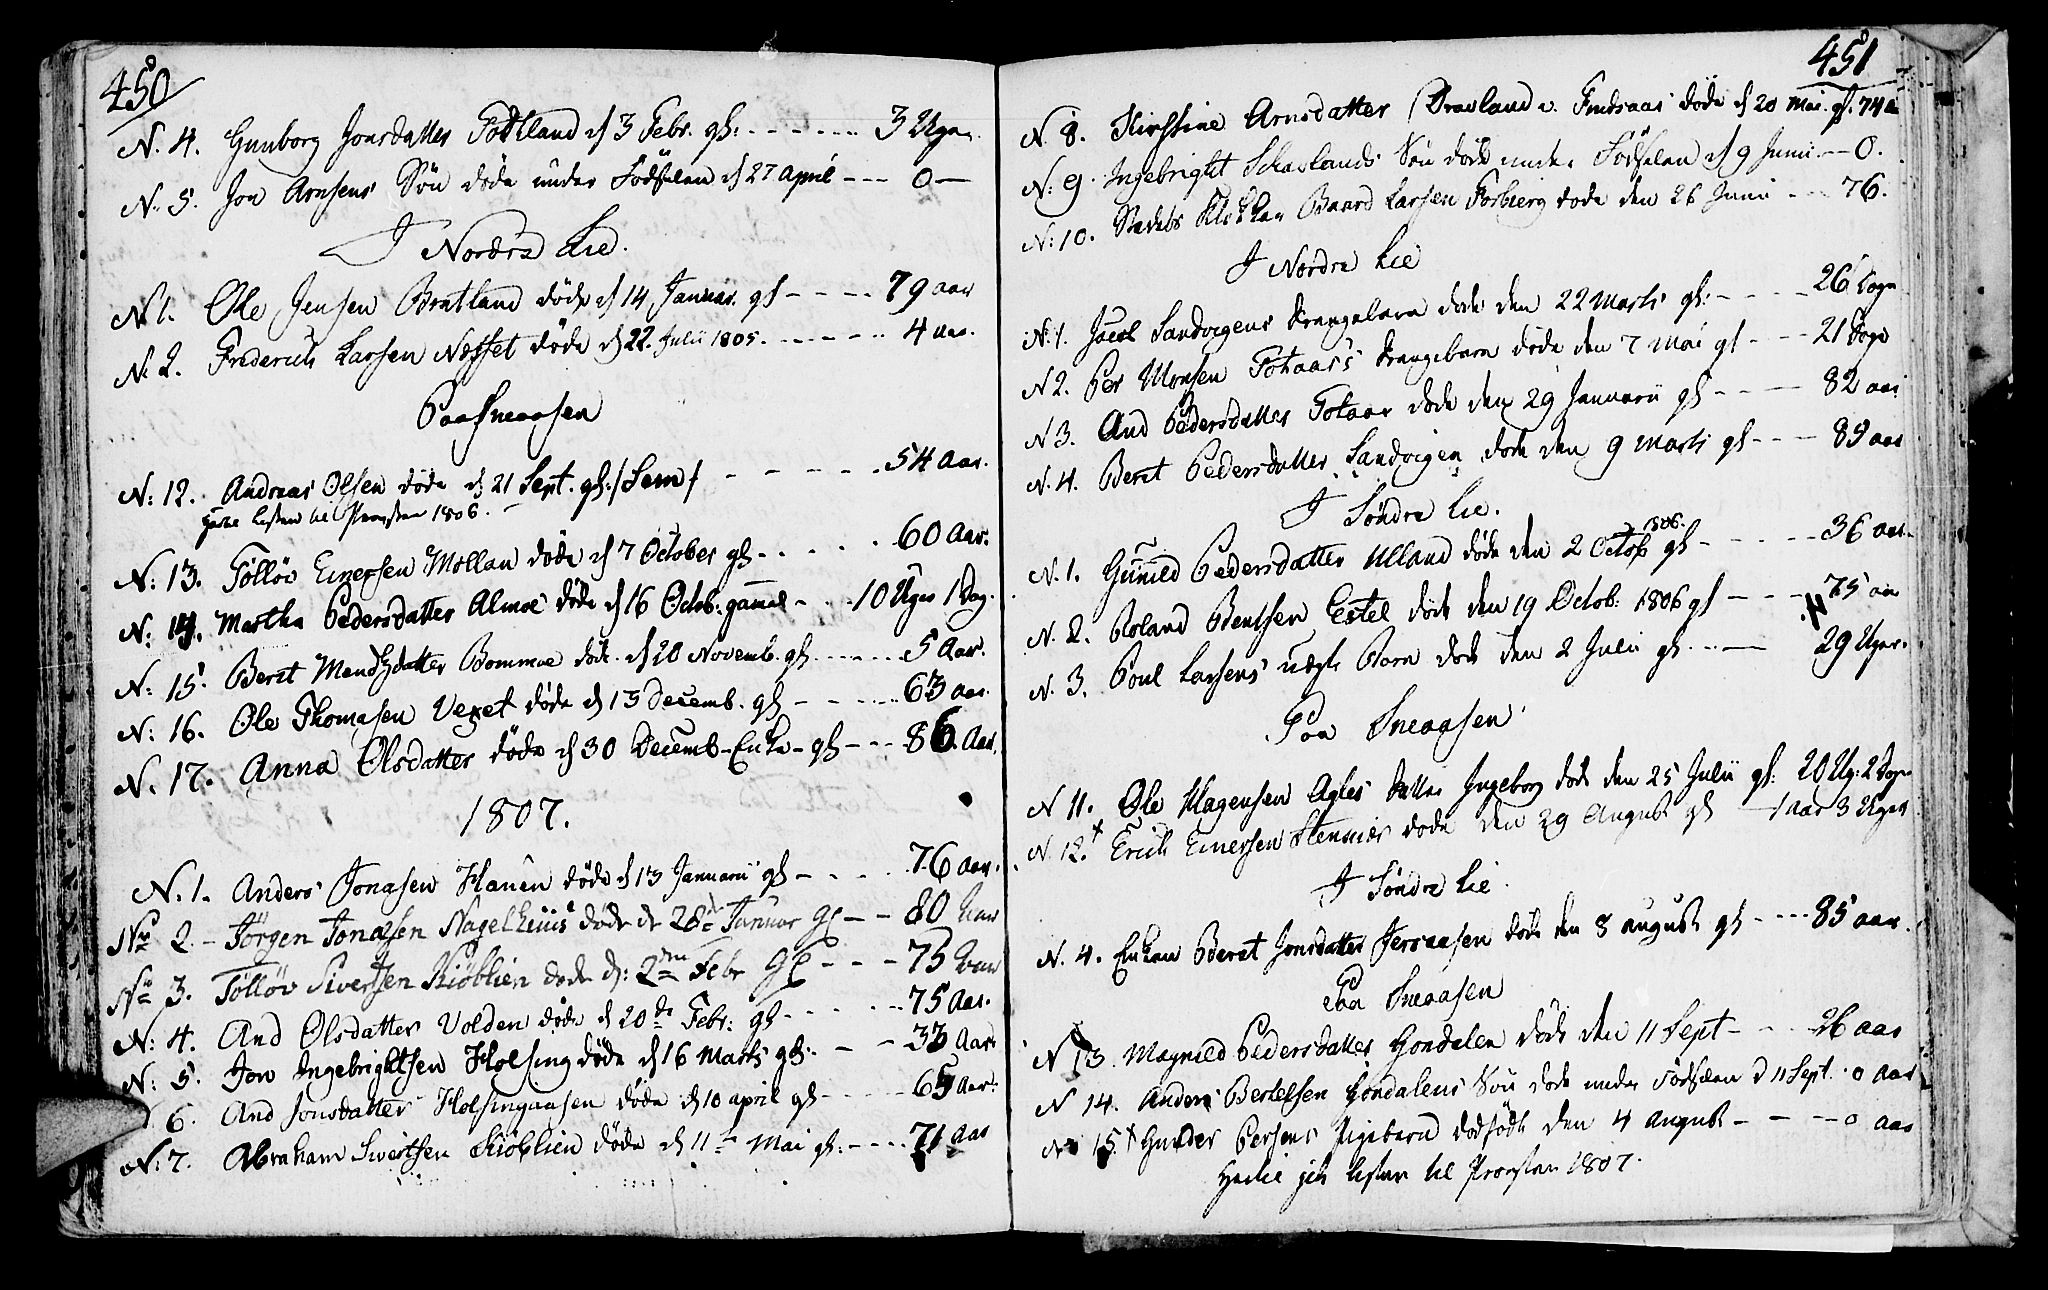 450
N. 4. Gunborg Jonsdatter Fottland d 3 Febr. gl: - - - 3 Uger
N. 5. Jon Arnsens Søn døde under Fødselen d 27 April - - - 0 -
I Nordra Lie.
N 1. Ole Jensen Bratland døde d 14 Januar. gl - - - 79 aar
N. 2. Frederich Larsen Nesset døde d 22. Julii 1805. - - - 4 aar.
Paa Sneaasen
N: 12. Andreas Olsen døde d 21 Sept. gl. /Sem/ - - - 54 Aar.
Hertil Listen til Provsten 1806.
N: 13. Tølløv Einersen Mollan døde d 7 October gl - - - 60 Aar.
N: 14. Martha Pedersdatter Almoe døde d 16 Octob: gammel - - 10 Uger 1 Dag.
N: 15. Beret Mendzdatter Bommoe døde d 20 Novemb. gl - - - 5 Aar.
N: 16. Ole Thomasen Veget døde d 13 Decemb. gl - - - 63 aar.
N. 17. Anna Olsdatter døde d 30 Decemb - Enke - gl - - - 86 Aar
1807.
N. 1. Anders Jonasen Hauen døde d 13 Januarii gl - - - 76 Aar.
No 2 - Jørgen Jonasen Nagelhuus døde d 28de Januar gl - - 80 Aar
No 3. Tølløv Sivertsen Kiøblien døde d: 2den Febr gl - - - 75 Aar
N: 4. And Olsdatter Volden døde d 20de Febr: gl - - - 75 Aar.
N: 5. Jon Ingebrightsen Holsing døde d 16 Marts gl. - - 33 Aar
6. And Jonsdatter Holsingaasen døde d 10 april gl - - - 65 Aar.
N: 7. Abraham Sivertsen Kiøblien døde d 11te Mai gl: - - - 71 Aar
451
N. 8. Kirstine Arnsdatter Braland v. Finsaas døde d 20 Mai. gl. 74 a
N: 9. Ingebright Schavlands Søn døde under Fødselen d 9 Junii - 0.
N: 10. Stedets Klokker Baard Larsen Forbierg døde den 26 Junii - - - 76.
I Nordre Lie
N. 1. Jacob Sandvigens drengebarn døde den 22 Marts gl: - - - 26 Dage
N 2. Per Monsen Totaas's drengebarn døde den 7 Mai gl - - - 21 Dage
N 3. And Pedersdatter Totaas døde den 29 Januarii gl - - - 82 aar
N. 4. Beret Pedersdatter Sandvigen døde den 9 Marts gl - - - 89 aar
I Søndre Lie.
N. 1. Gunild Pedersdatter Ulland døde den 2 Octob 1806. gl - - - 36 aar.
N. 2. Roland Bentsen Estel døde den 19 Octob: 1806 gl - - - 75 aar
N. 3. Poul Larsens uægte Barn døde den 2 Julii gl. - - - 29 Uger.
Paa Sneaasen
N 11. Ole Hagensen Agles datter Ingeborg døde den 25 Julii gl: 20 Ug: 2 Dage
N. 12.x Erich Einersen Stenvies døde den 29 August gl - 1 aar 3 Uger
I Søndre Lie.
N. 4. Enken Beret Jonsdatter Jersaasen døde den 8 august gl - - - 85 aar.
Paa Sneaasen
N 13. Magnild Pedersdatter Gondalen døde den 11 Sept - - - 26 aar
N 14. Anders Bertelsen Gondalens Søn døde under Fødselen d 11 Sept. 0 aar
N 15.x Gunder Persens Pigebarn dødfødt den 4 august - - - 0 aar
Hertil gik listen til Provsten 1807.